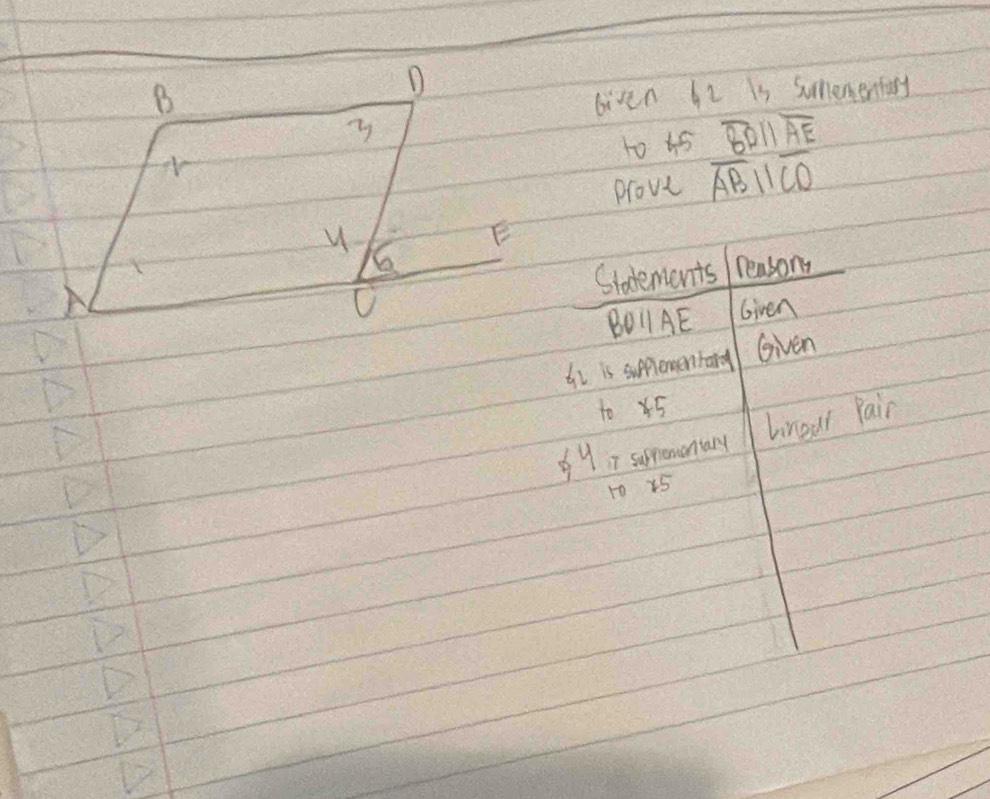 B
D
2
3
1
4
5
E
A
C
Given ∡2 is Supplementary
to ∡5 BD || AE
Prove AB || CD
Statements | reasons
BD || AE | Given
∡2 is supplementary | Given
to ∡5
∡4 is supplementary | Linear Pair
to ∡5